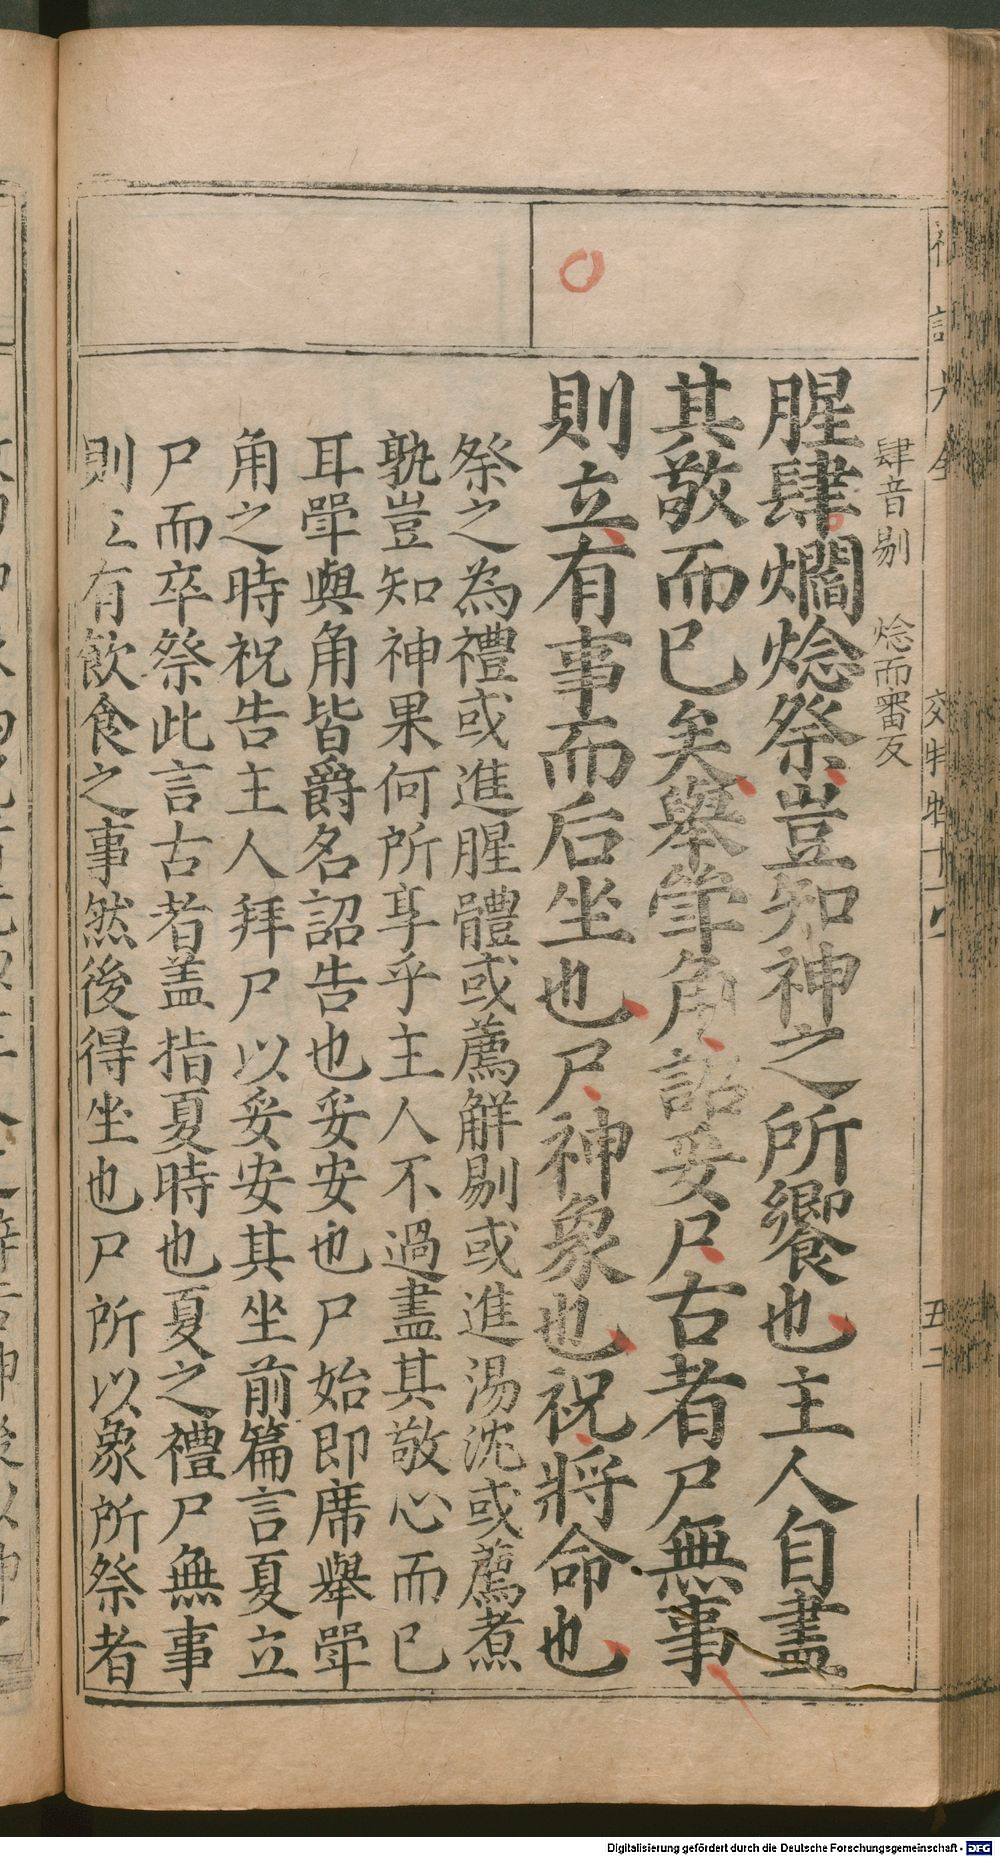 肆音剔 焾而審反
腥肆爓焾祭豈知神之所饗也主人自盡
其敬而已矣舉斝角詔妥尸古者尸無事
則立有事而后坐也尸神象也祝將命也
祭之為禮或進腥體或薦觧剔或進湯沈或薦煮
孰豈知神果何所享乎主人不過盡其敬心而已
耳斝與角皆爵名詔告也妥安也尸始即席舉斝
角之時祝告主人拜尸以妥安其坐前篇言夏立
尸而卒祭此言古者盖指夏時也夏之禮尸無事
則立有飲食之事然後得坐也尸所以象所祭者
Digitalisierung gefördert durch die Deutsche Forschungsgemeinschaft - DFG